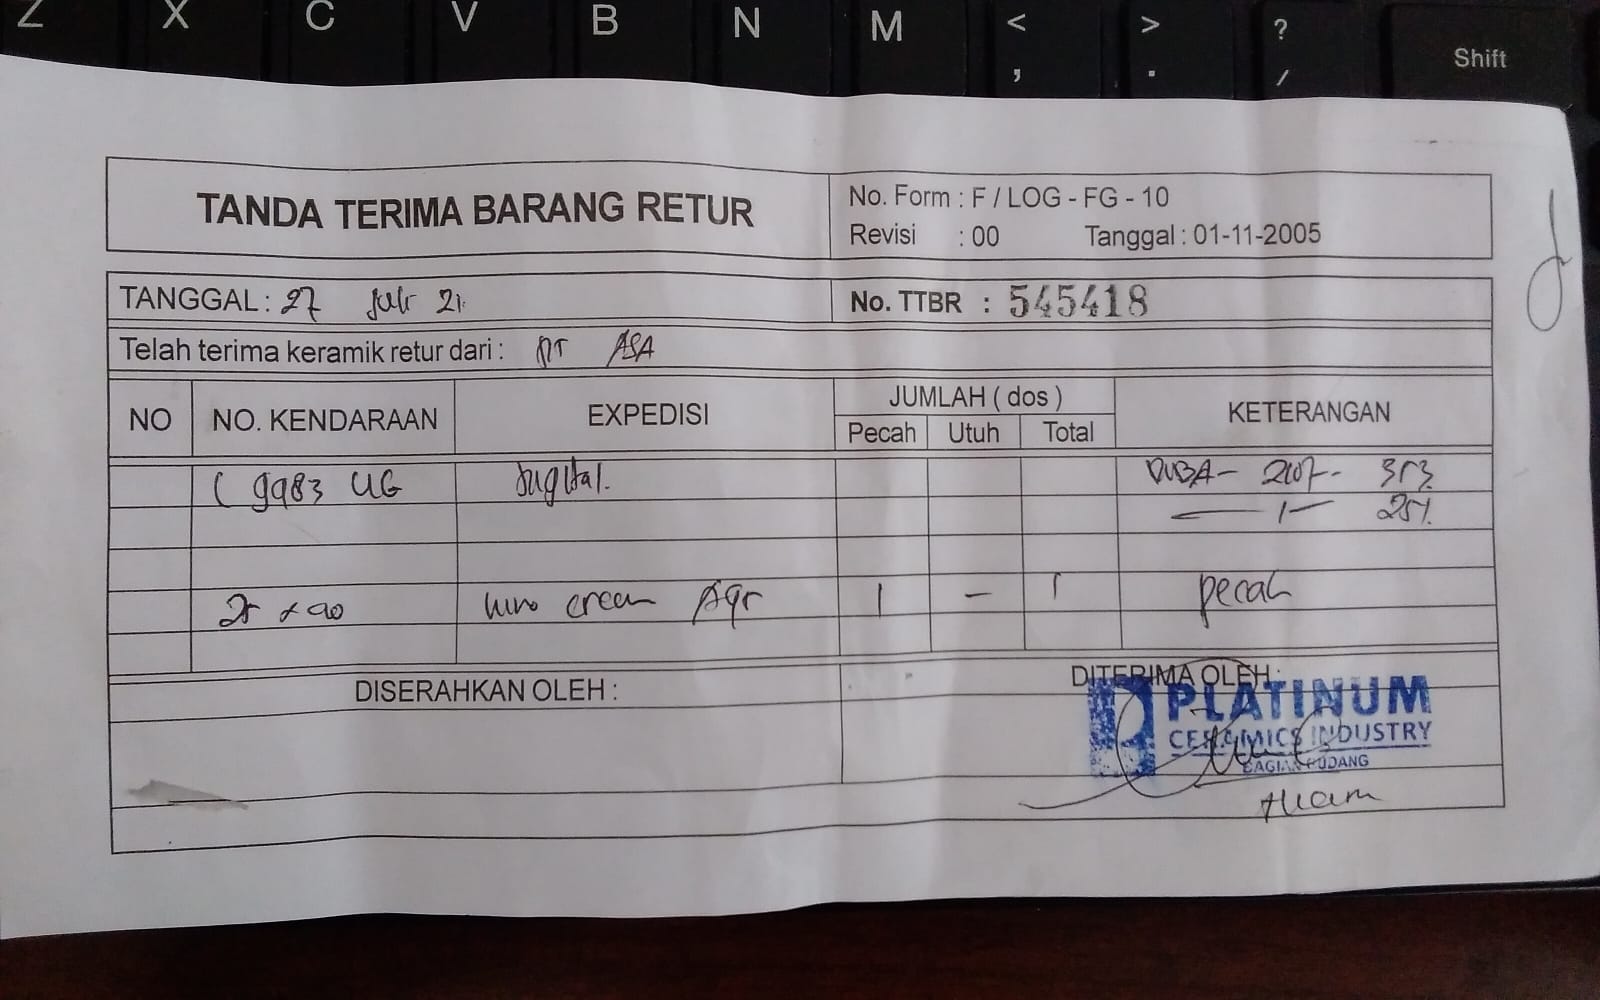 Z X C V B N M < , > . ? / Shift
TANDA TERIMA BARANG RETUR
No. Form : F / LOG - FG - 10
Revisi : 00 Tanggal : 01-11-2005
TANGGAL : 27 Juli 21
No. TTBR : 545418
Telah terima keramik retur dari : PT ASA
NO NO. KENDARAAN EXPEDISI JUMLAH ( dos ) KETERANGAN
Pecah Utuh Total
9983 UG 2107
25 x 40 cream 1 - 1 pecah
DISERAHKAN OLEH :
DITERIMA OLEH :
PLATINUM
CERAMICS INDUSTRY
BAGIAN GUDANG